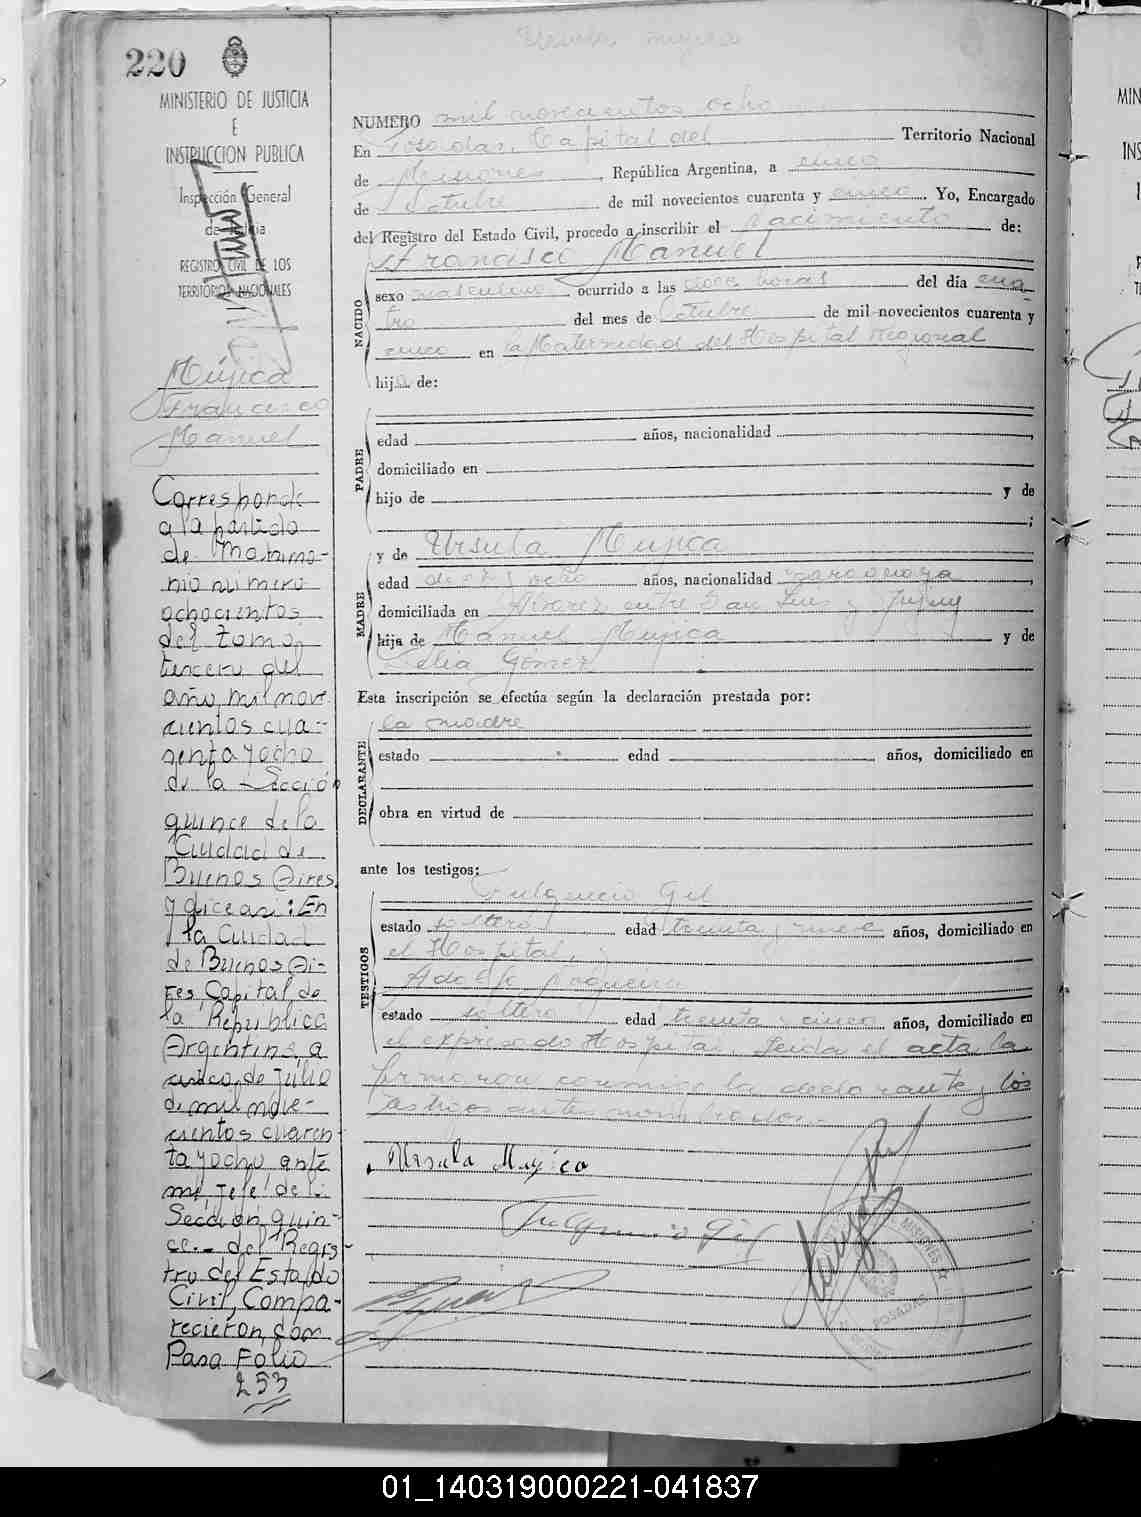 220
MINISTERIO DE JUSTICIA
E
INSTRUCCION PUBLICA
Inspección General
de Justicia
REGISTRO CIVIL DE LOS
TERRITORIOS NACIONALES
Mujica
Francisco
Manuel
Corresponde
a la partida
de Matrimo-
nio número
ochocientos
del tomo
tercero del
año mil nove
cientos cua-
renta y ocho
de la Sección
quince de la
Ciudad de
Buenos Aires
y dice así: En
la Ciudad
de Buenos Ai-
res, Capital de
la República
Argentina, a
cinco de Julio
de mil nove-
cientos cuaren-
ta y ocho ante
mí, Jefe de la
Sección quin-
ce.- del Regis-
tro del Estado
Civil, Compa-
recieron, con
Pasa Folio
253
Ursula Mujica
NUMERO mil novecientos ocho
En Posadas, Capital del Territorio Nacional
de Misiones, República Argentina, a cinco
de Octubre de mil novecientos cuarenta y cinco. Yo, Encargado
del Registro del Estado Civil, procedo a inscribir el nacimiento de:
Francisco Manuel
NACIDO
sexo masculino ocurrido a las doce horas del día cua
tro del mes de Octubre de mil novecientos cuarenta y
cinco en la Maternidad del Hospital Regional
hijo de:
PADRE
edad años, nacionalidad
domiciliado en
hijo de y de
;
MADRE
y de Ursula Mujica
edad dieciocho años, nacionalidad paraguaya,
domiciliada en Alvarez entre San Luis y Jujuy
hija de Manuel Mujica y de
Celia Gómez
Esta inscripción se efectúa según la declaración prestada por:
DECLARANTE
la madre
estado edad años, domiciliado en
obra en virtud de
ante los testigos:
TESTIGOS
Fulgencio Gil
estado soltero edad treinta y nueve años, domiciliado en
el Hospital,
Adolfo
estado soltero edad treinta y cinco años, domiciliado en
el expresado Hospital. Leida el acta la
firmaron conmigo la declarante y los
testigos antes nombrados.-
Ursula Mujica
Fulgencio Gil
MISIONES
POSADAS
01_140319000221-041837